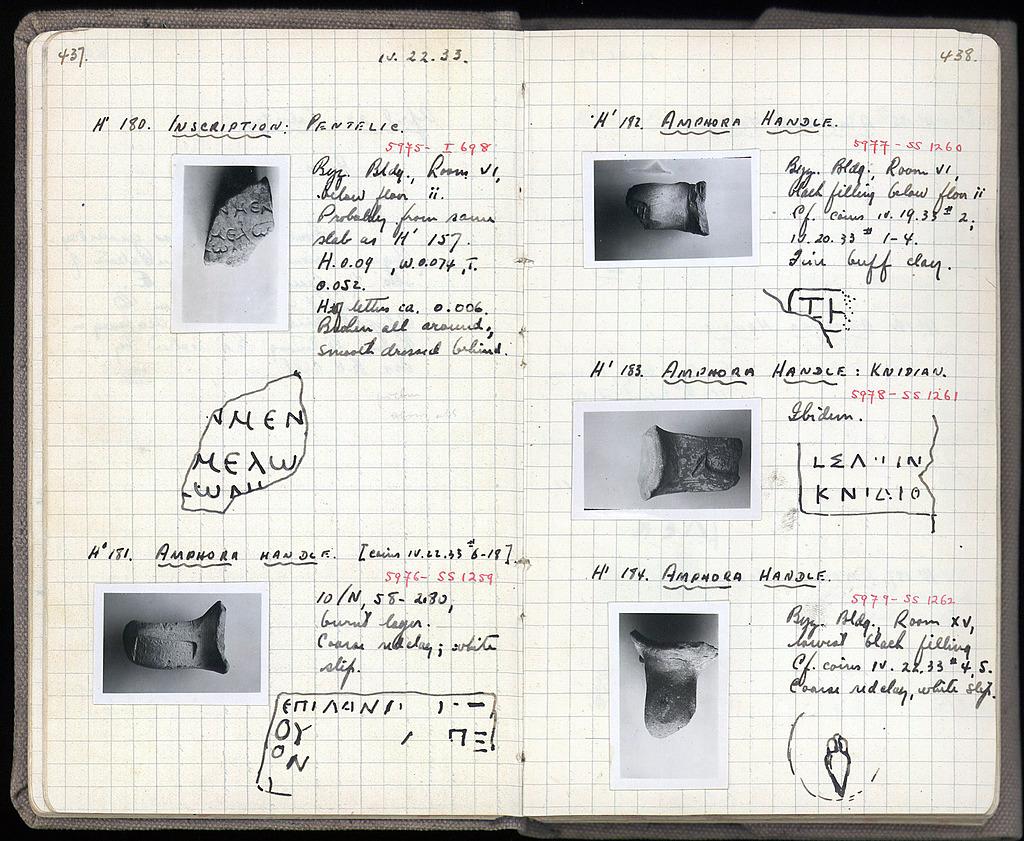 437.
IV. 22. 33.
H' 180. INSCRIPTION: PENTELIC.
5975- I 698
Byz. Bldg., Room VI,
below floor ii.
Probably from same
slab as H' 157.
H. 0.09 , W. 0.074, T.
0.052.
H. of letters ca. 0.006.
Broken all around,
smooth dressed behind.
ΜΕΝ
ΜΕΛω
H' 181. AMPHORA HANDLE. [Coins IV.22.33 #6-18].
5976- SS 1259
10/N, 58- 2.80,
burnt layer.
Coarse red clay; white
slip.
ΕΠΙ
ΟΥ
ΟΝ
438.
H' 182. AMPHORA HANDLE.
5977- SS 1260
Byz. Bldg., Room VI,
black filling below floor ii
Cf. coins IV. 19. 33 # 2,
IV. 20. 33 # 1-4.
Fine buff clay.
H' 183. AMPHORA HANDLE: KNIDIAN.
5978- SS 1261
Ibidem.
ΚΝΙΔΙΟ
H' 184. AMPHORA HANDLE.
5979- SS 1262
Byz. Bldg. Room XV,
lowest black filling
Cf. coins IV. 22.33 # 4, 5.
Coarse red clay, white slip.